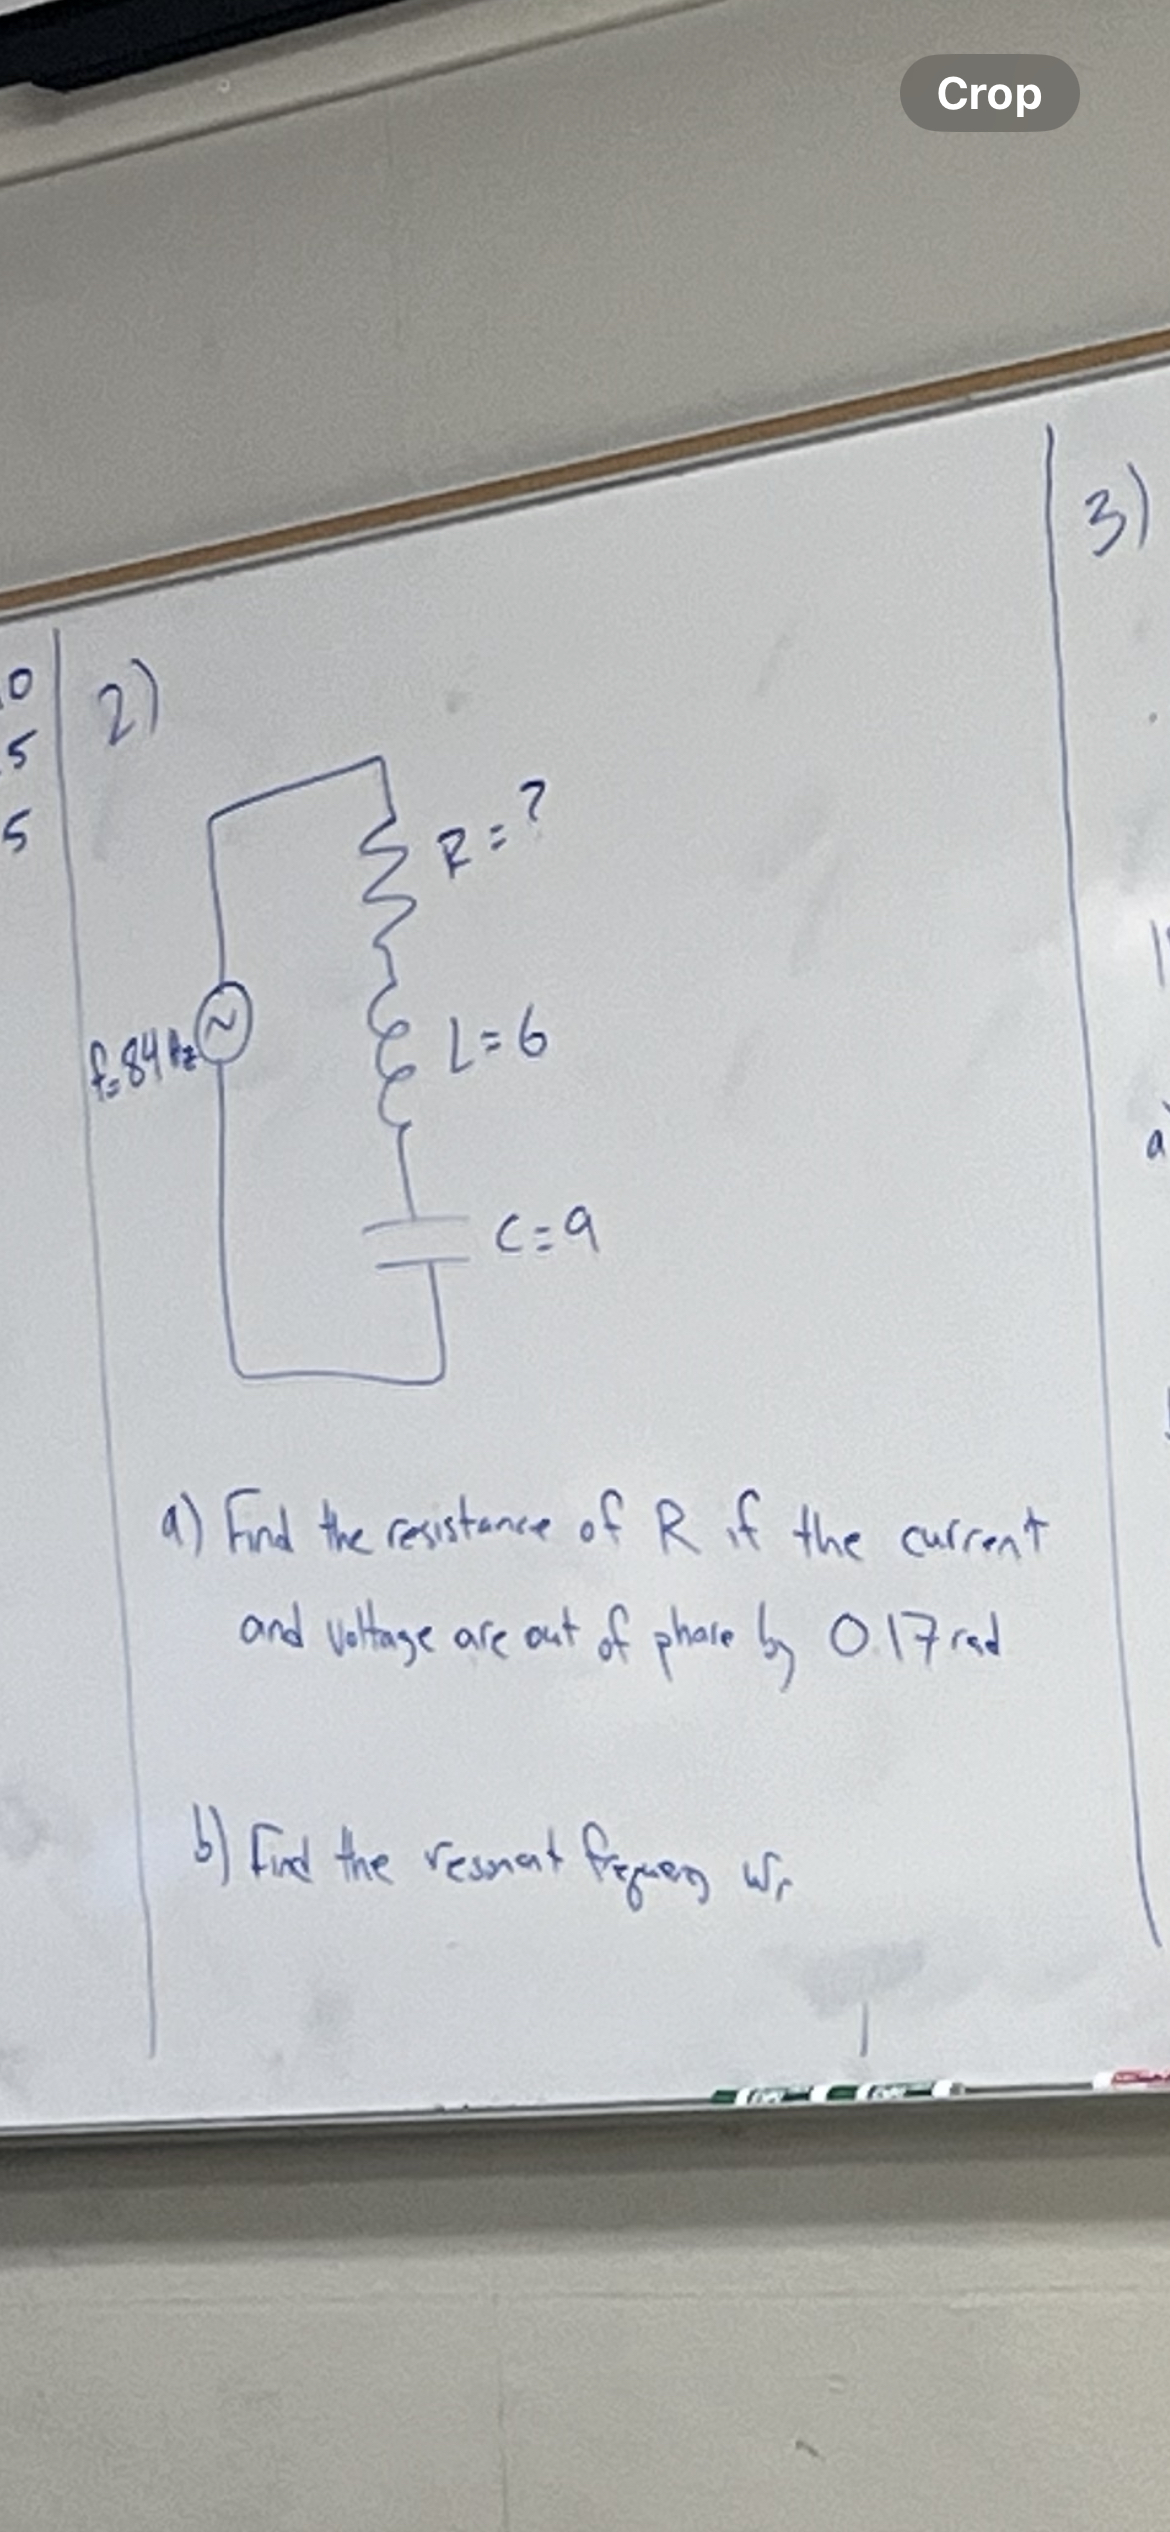 Crop
3)
0
5
5
2)
R = ?
f=84 Hz
L=6
C=9
a
a) Find the resistance of R if the current
and voltage are out of phase by 0.17 rad
b) Find the resonant frequency ωr